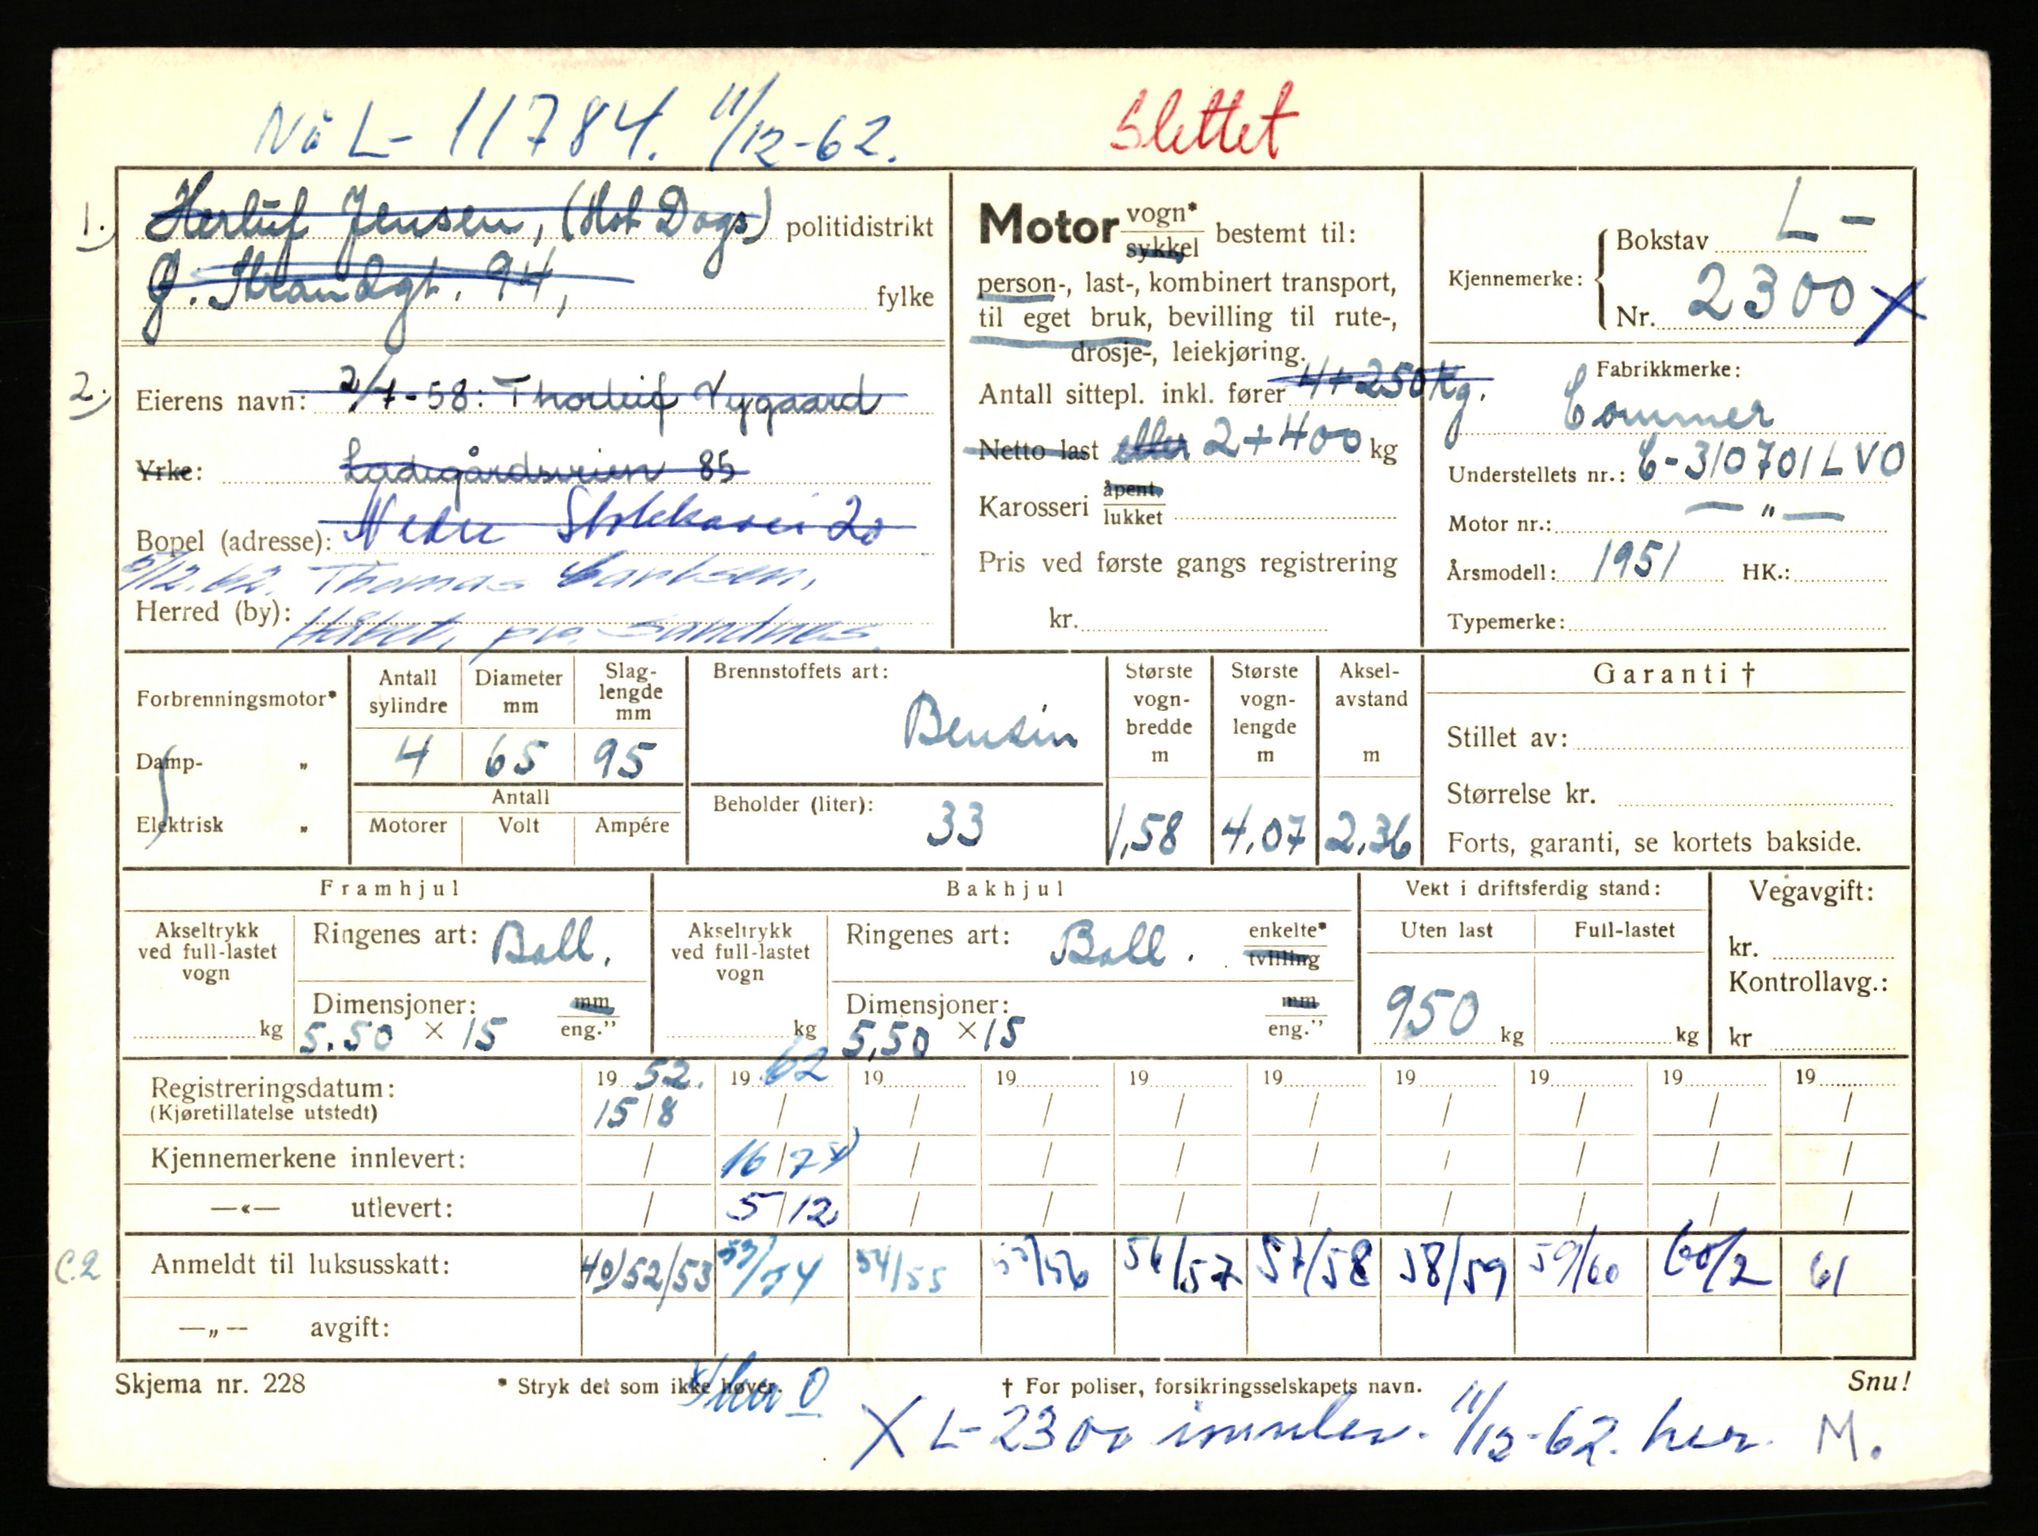 Nå L- 11784. 11/12-62.
Slettet
1. Herluf Jensen, (Hot Dogs) politidistrikt
Ø. Strandgt. 94, fylke
2. Eierens navn: 2/7-58: Thorleif Nygaard
Yrke: Ladegårdsveien 85
Bopel (adresse): Nedre Stokkavei 20
5/12.62. Thomas
Herred (by): pr. Sandnes.
Motor vogn* sykkel bestemt til:
person-, last-, kombinert transport,
til eget bruk, bevilling til rute-,
drosje-, leiekjøring.
Antall sittepl. inkl. fører 4+250 kg.
Netto last eller 2+400 kg
Karosseri åpent, lukket
Pris ved første gangs registrering
kr.
Kjennemerke: Bokstav L-
Nr. 2300 X
Fabrikkmerke:
Commer
Understellets nr.: C-310701LVO
Motor nr.: — " —
Årsmodell: 1951 HK.:
Typemerke:
Forbrenningsmotor*
Damp- „
Elektrisk „
Antall sylindre
4
Diameter mm
65
Slag-lengde mm
95
Antall
Motorer Volt Ampére
Brennstoffets art:
Bensin
Beholder (liter): 33
Største vogn-bredde m
1,58
Største vogn-lengde m
4.07
Aksel-avstand m
2.36
Garanti †
Stillet av:
Størrelse kr.
Forts, garanti, se kortets bakside.
Framhjul
Akseltrykk ved full-lastet vogn
kg
Ringenes art: Ball.
Dimensjoner: mm eng."
5.50 × 15
Bakhjul
Akseltrykk ved full-lastet vogn
kg
Ringenes art: Ball. enkelte* tvilling
Dimensjoner: mm eng."
5,50 × 15
Vekt i driftsferdig stand:
Uten last Full-lastet
950 kg kg
Vegavgift:
kr.
Kontrollavg.:
kr
Registreringsdatum: 19 52. 19 62 19 19 19 19 19 19 19 19
(Kjøretillatelse utstedt) 15/8 / / / / / / / / /
Kjennemerkene innlevert: / 16/7 / / / / / / / /
—«— utlevert: / 5/12 / / / / / / / /
C.2 Anmeldt til luksusskatt: 40/52/53 53/54 54/55 55/56 56/57 57/58 58/59 59/60 60/2 61
—„— avgift:
Skjema nr. 228 * Stryk det som ikke høver. † For poliser, forsikringsselskapets navn. Snu!
X L-2300 innlev. 11/12-62. her. M.